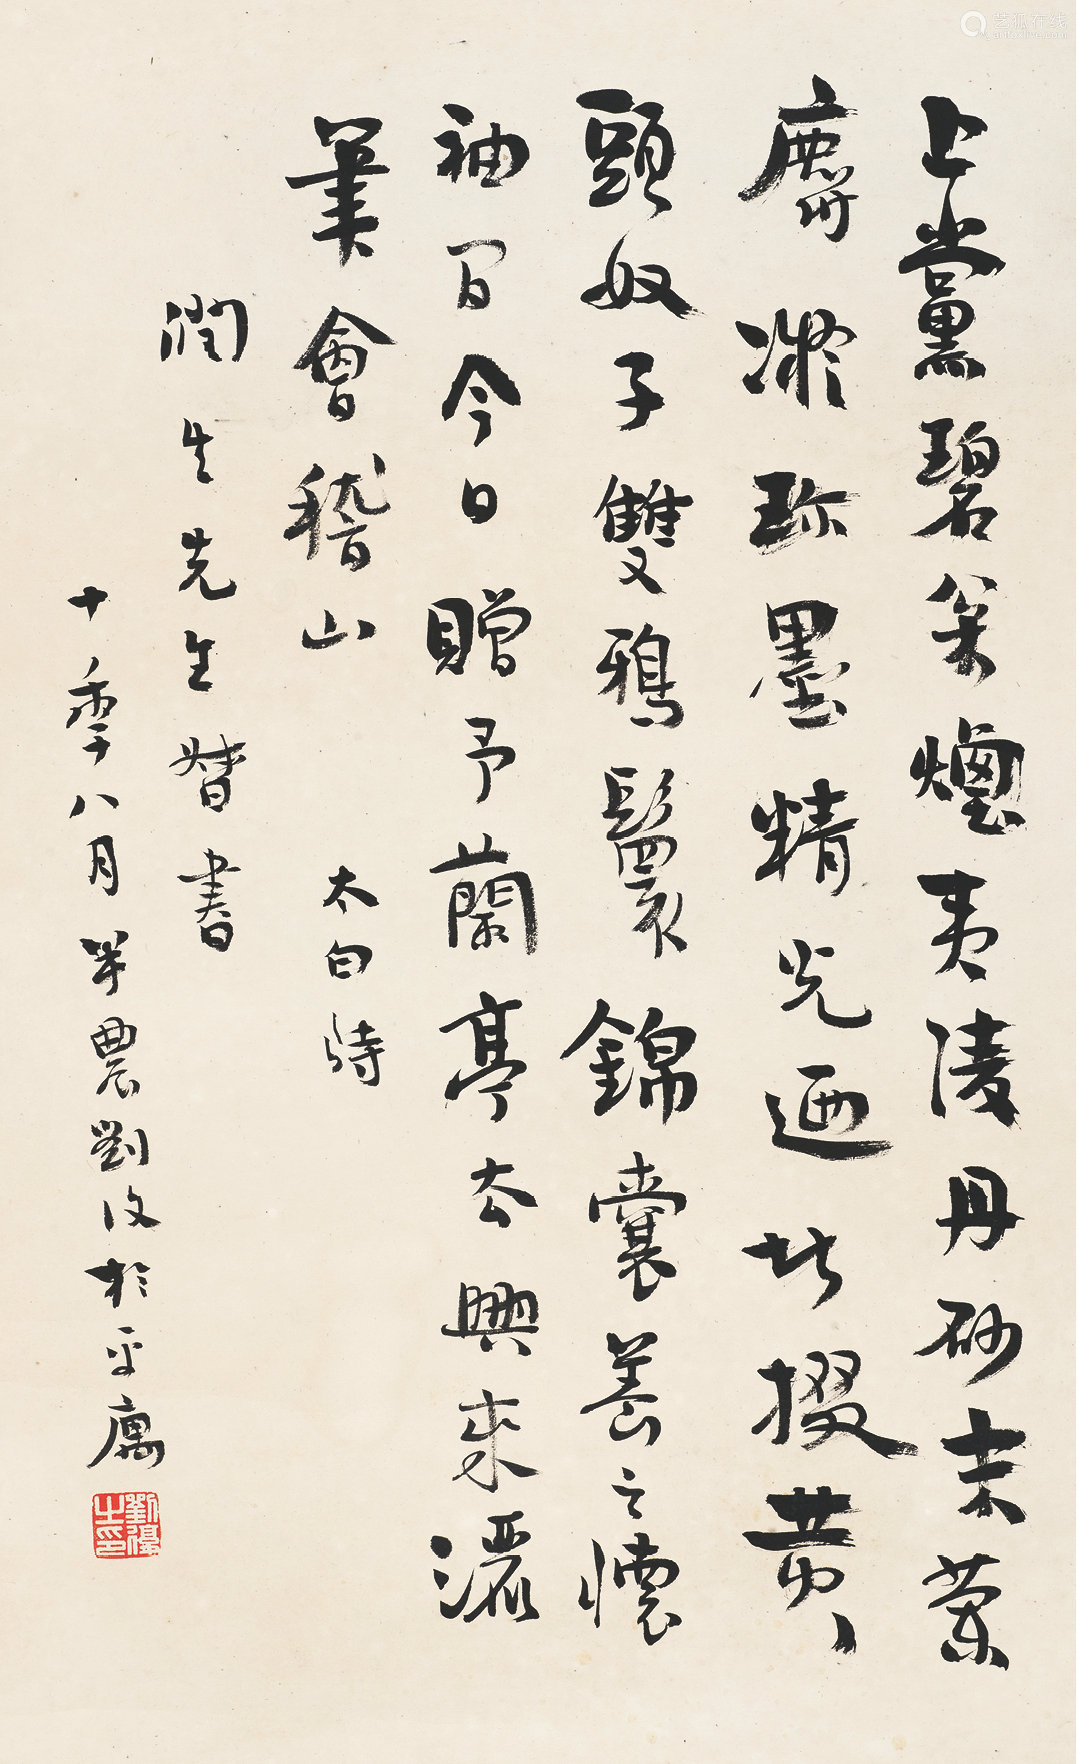 上黨碧枀煙夷陵丹砂末蘭
麝凝珍墨精光迺堪掇黃
頭奴子雙鴉鬟錦囊養之懷
袖間今日贈予蘭亭去興來灑
筆會稽山 太白詩
潤生先生書
十秊八月半農劉復於平寓
劉復之印
艺狐在线
artfoxlive.com